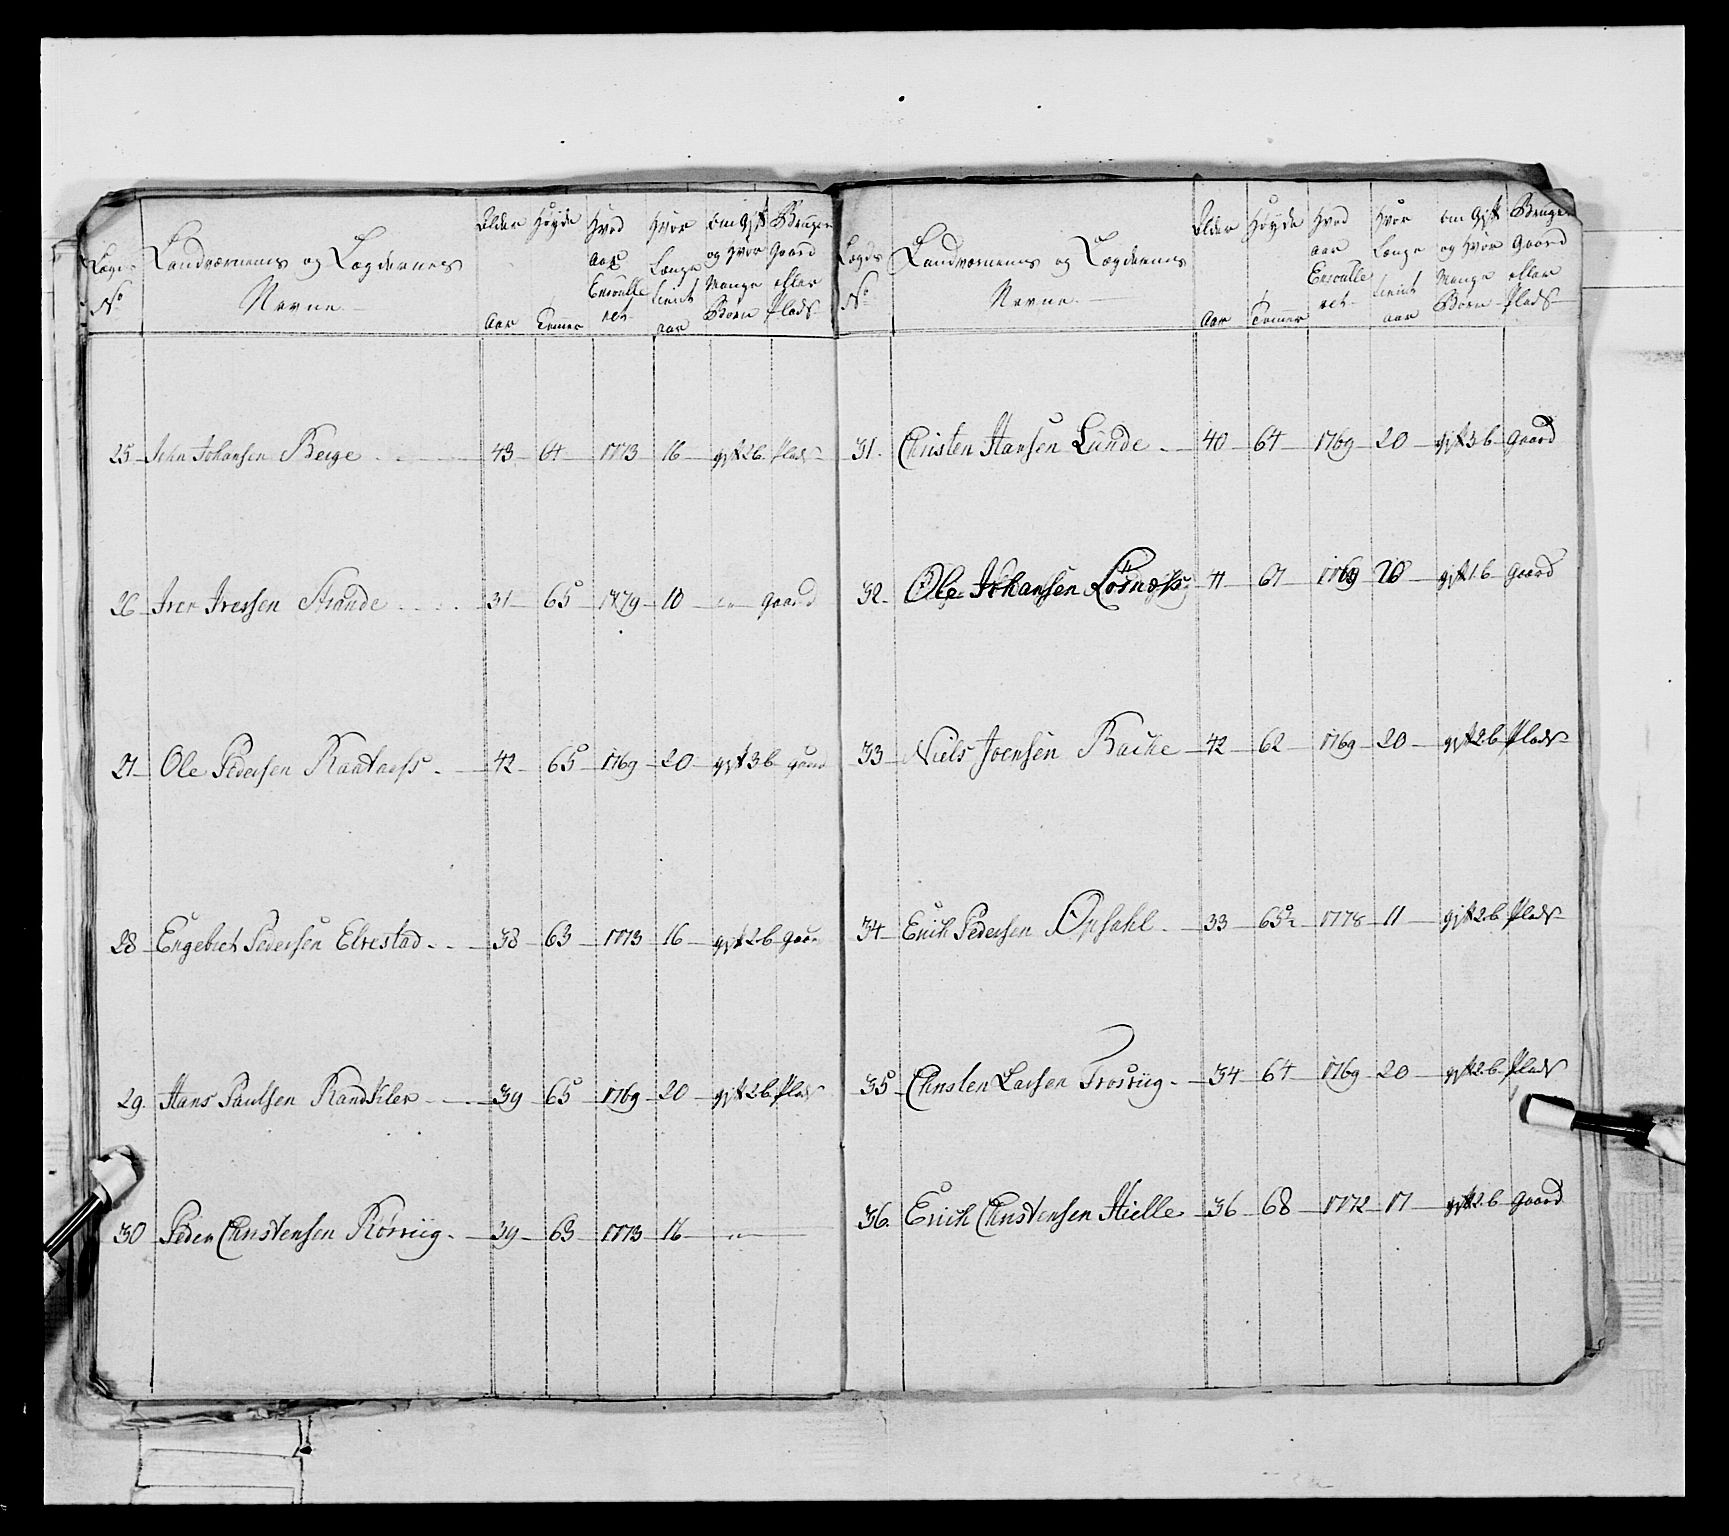 Lægds No Landværnenes og Lægdernes Nevne Alder Aar Høyde Tomer Hvad Aar Enroulleret Hvor Længe tient aar om Gift og Hvor Mange Børn Bruger Gaard eller Plads
25 John Johansen Berge 43 64 1773 16 gift 2 b Plads
26 Iver Iversen Strande 31 65 1779 10 Gaard
27 Ole Pedersen Raatnæss 42 65 1769 20 gift 3 b gaard
28 Engebret Pedersen Elvestad 38 63 1773 16 gift 2 b gaar
29 Hans Paulsen Randkler 39 65 1769 20 gift 2 b Plads
30 Peder Christensen Rørviig 39 63 1773 16
Lægds No Landværnenes og Lægdernes Nevne Alder Aar Høyde Tomer Hvad aar Enroulleret Hvor Længe tient aar om Gift og Hvor Mange Børn Bruger Gaard eller Plads
31 Christen Hansen Lunde 40 64 1769 20 gift 3 b Gaard
32 Ole Johansen 41 67 1769 20 gift 1 b Gaard
33 Niels Joensen Backe 42 62 1769 20 gift 2 b Plads
34 Erich Pedersen Opsahl 33 65½ 1778 11 gift 2 b Plads
35 Christen Larsen Trosviig 34 64 1769 20 gift 2 b Plads
36 Erich Christensen Hielle 36 68 1772 17 gift 2 b Gaard